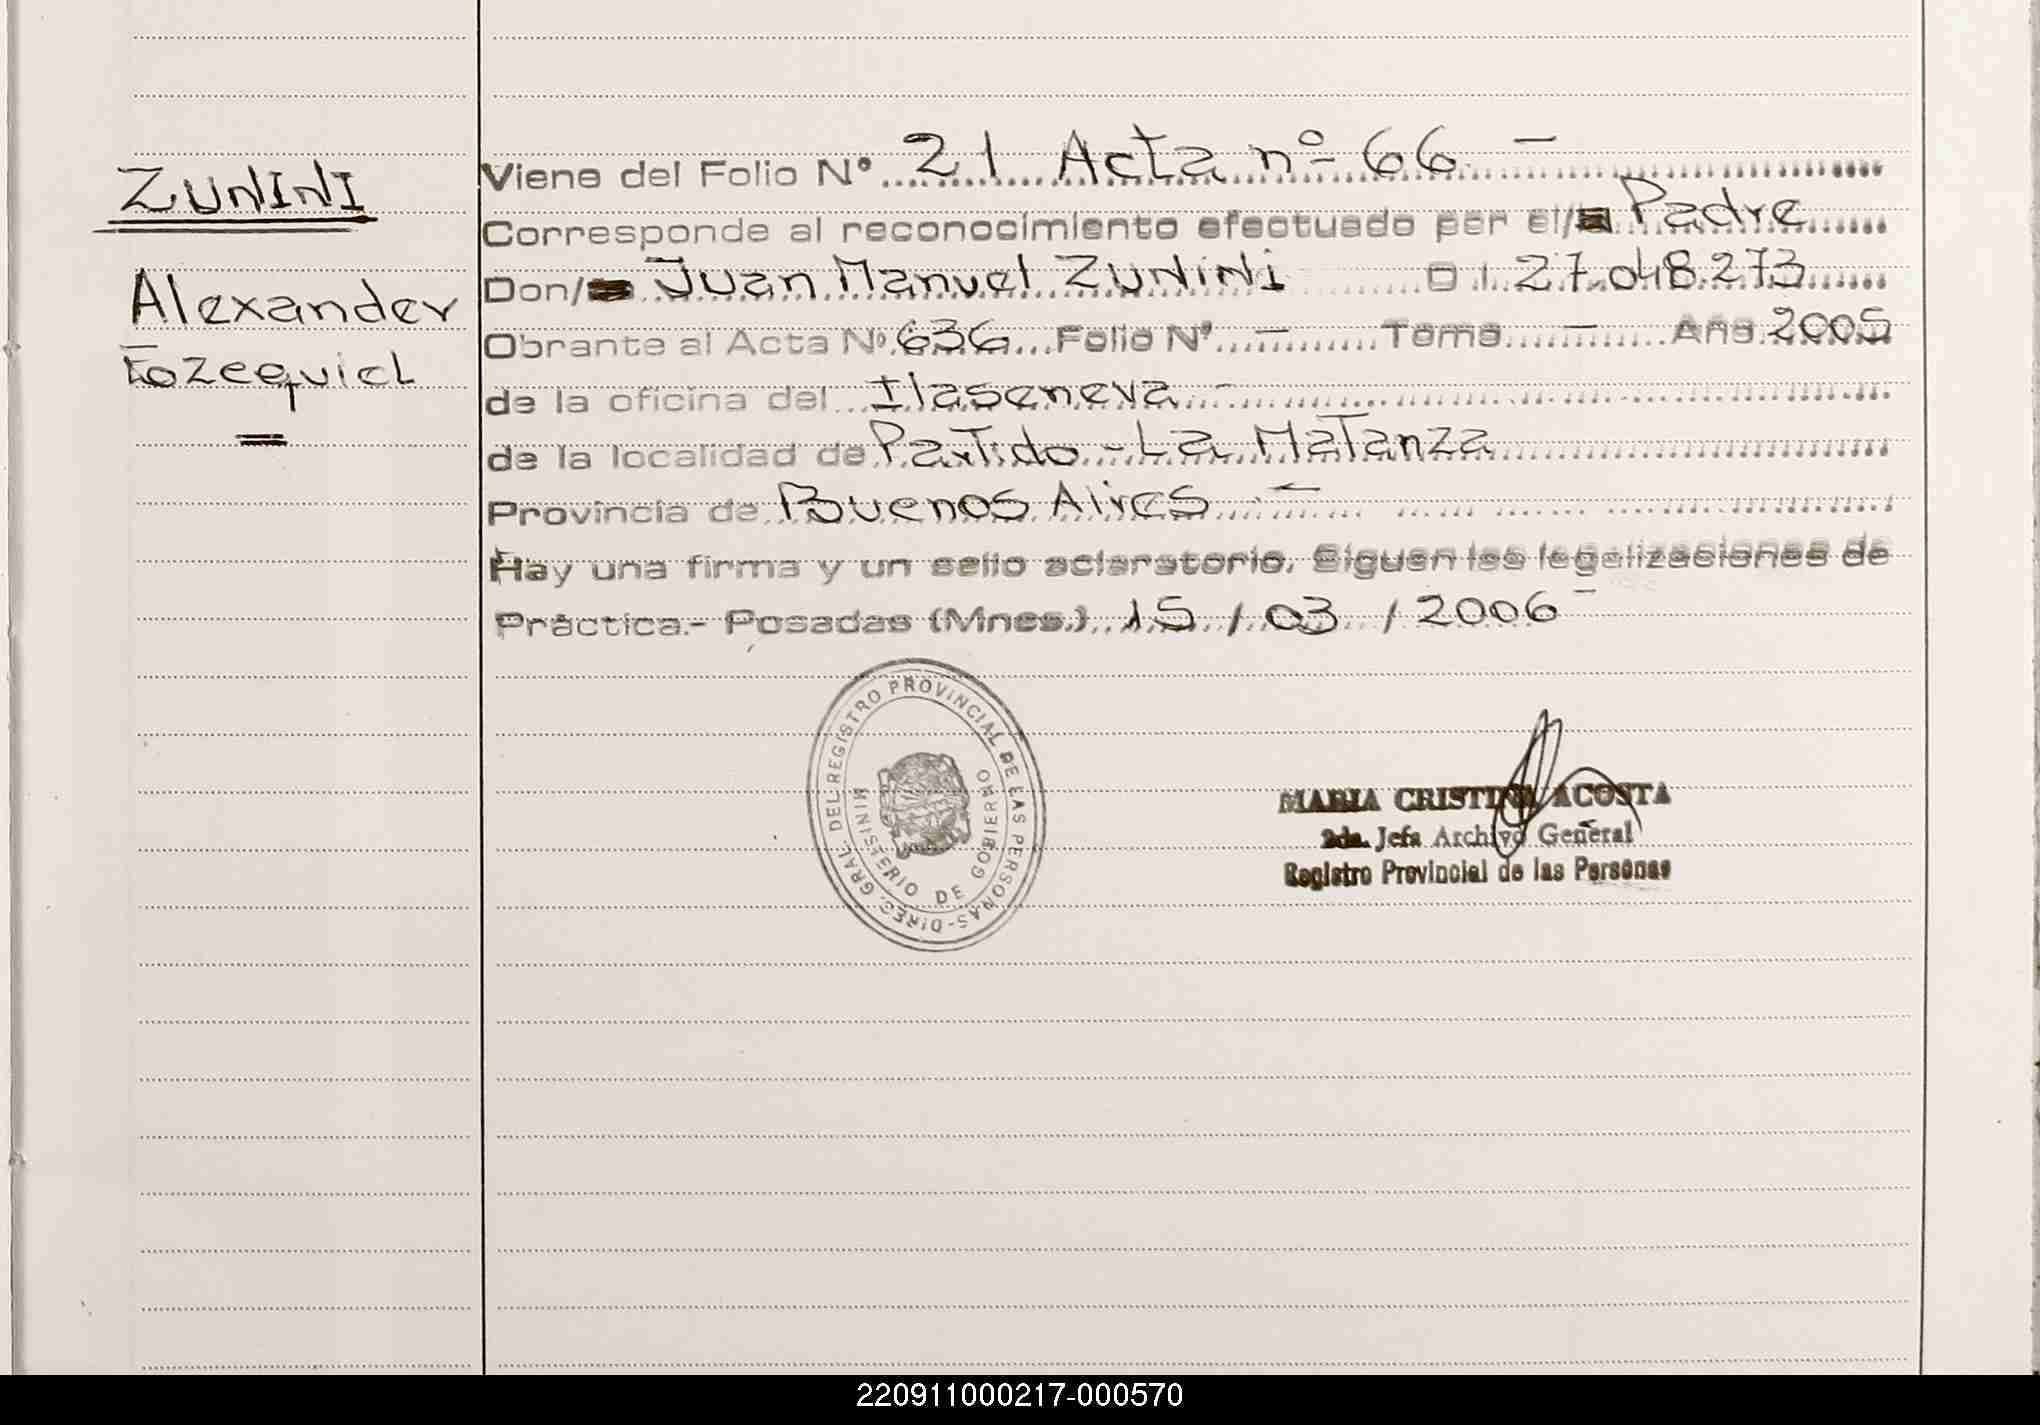 ZUNINI
Alexander
Eozequiel
Viene del Folio Nº 21 Acta nº 66 -
Corresponde al reconocimiento efectuado por el/ Padre
Don/ Juan Manuel ZUNINI D I 27.048.273
Obrante al Acta Nº 636 Folio Nº - Tomo - Año 2005
de la oficina del -
de la localidad de Partido - La Matanza
Provincia de Buenos Aires -
Hay una firma y un sello aclaratorio. Siguen las legalizaciones de
Práctica.- Posadas (Mnes.) 15 / 03 / 2006 -
DIREC. GRAL. DEL REGISTRO PROVINCIAL DE LAS PERSONAS -
MINISTERIO DE GOBIERNO
MARIA CRISTINA ACOSTA
2da. Jefa Archivo General
Registro Provincial de las Personas
220911000217-000570